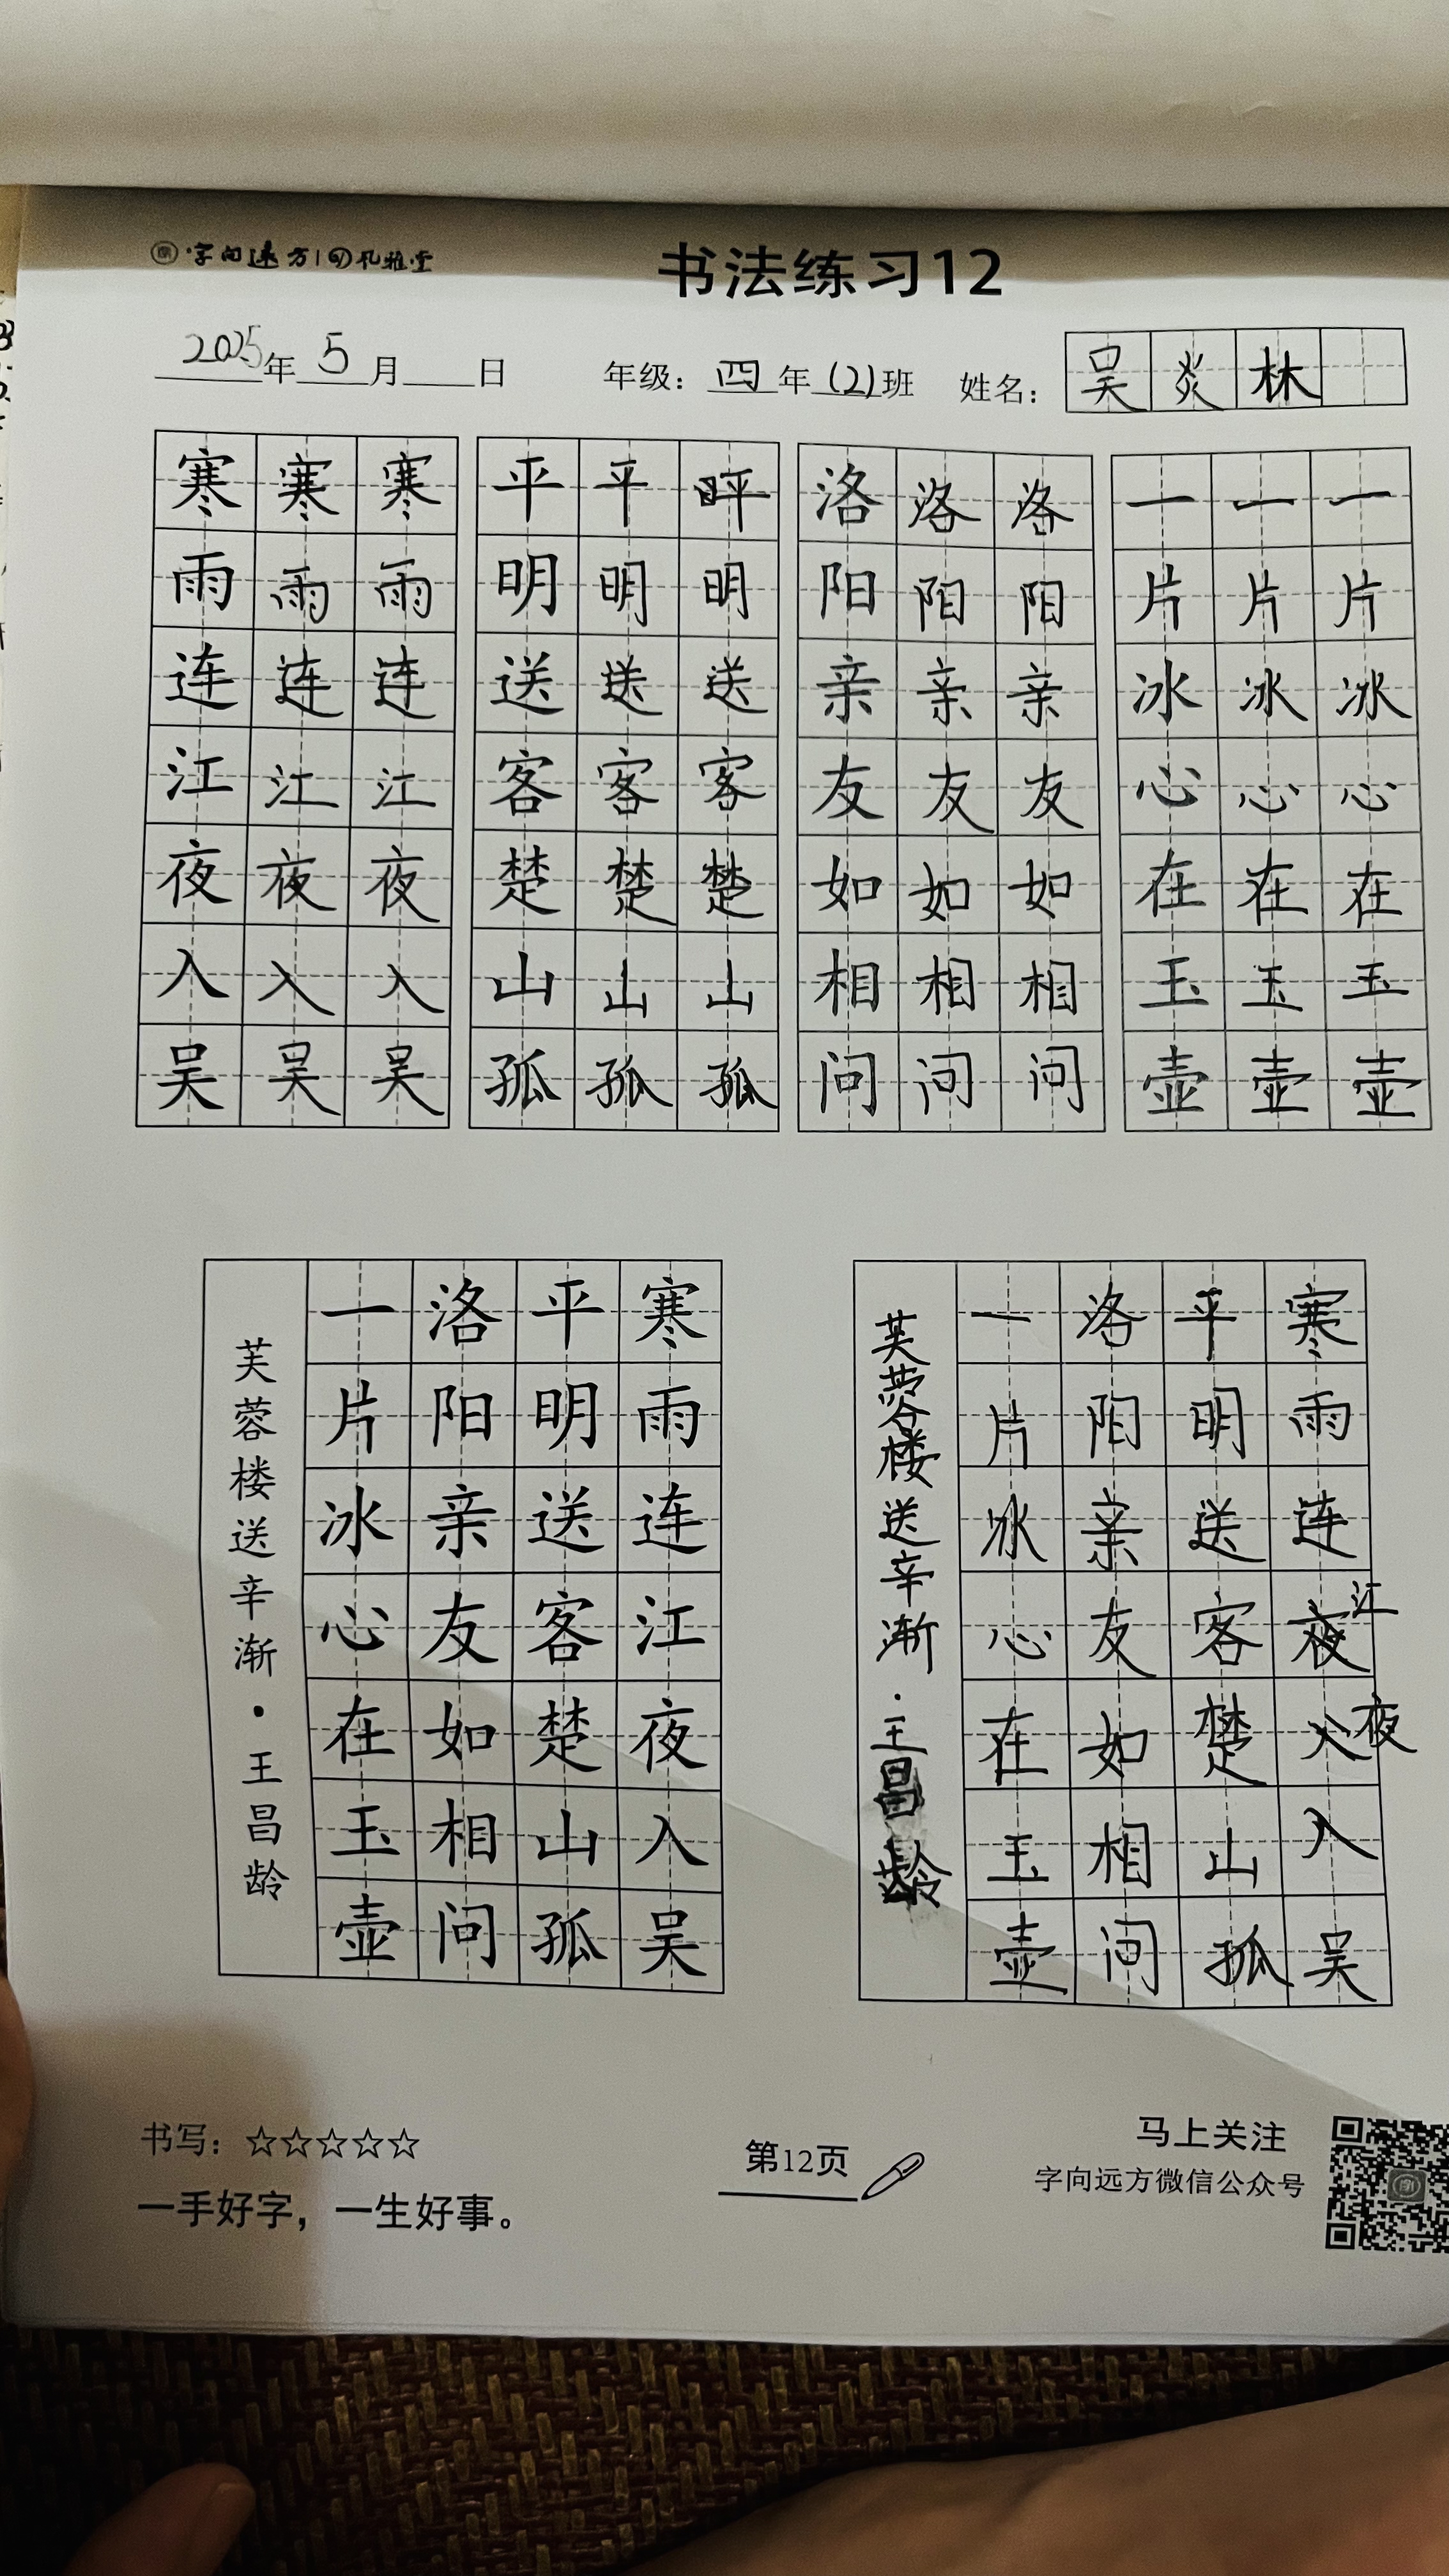 字向远方|孔雅堂
书法练习12
2025年5月 日 年级：四年(2)班 姓名：吴炎林
寒寒寒 平平 洛洛洛 一一一
雨雨雨 明明明 阳阳阳 片片片
连连连 送送送 亲亲亲 冰冰冰
江江江 客客客 友友友 心心心
夜夜夜 楚楚楚 如如如 在在在
入入入 山山山 相相相 玉玉玉
吴吴吴 孤孤孤 问问问 壶壶壶
寒雨连江夜入吴
平明送客楚山孤
洛阳亲友如相问
一片冰心在玉壶
芙蓉楼送辛渐·王昌龄
寒雨连夜入入吴
江夜
平明送客楚山孤
洛阳亲友如相问
一片冰心在玉壶
芙蓉楼送辛渐·王昌龄
书写：☆☆☆☆☆
一手好字，一生好事。
第12页
马上关注
字向远方微信公众号